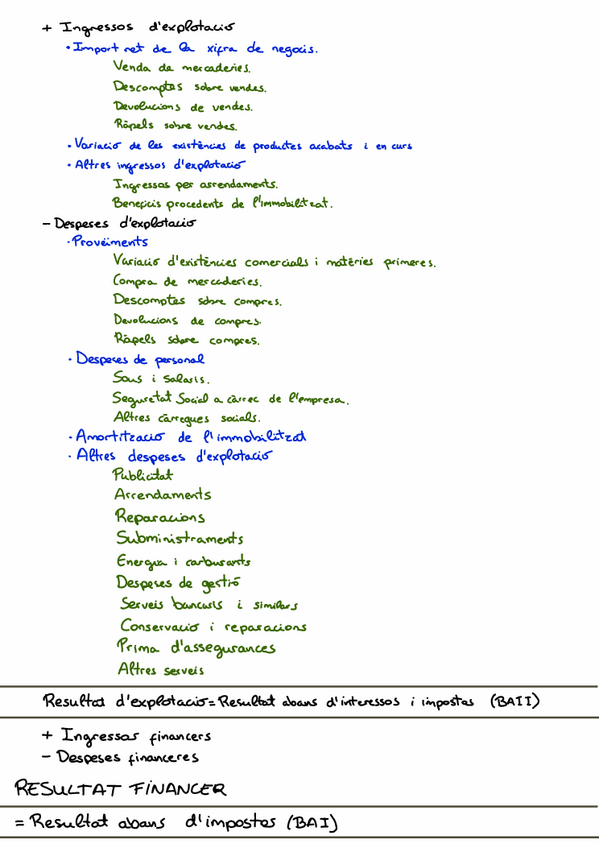 + Ingressos d'explotació
· Import net de la xifra de negocis.
Venda de mercaderies.
Descomptes sobre vendes.
Devolucions de vendes.
Ràpels sobre vendes.
· Variació de les existències de productes acabats i en curs
· Altres ingressos d'explotació
Ingressos per arrendaments.
Beneficis procedents de l'immobilitzat.
- Despeses d'explotació
· Proveïments
Variació d'existències comercials i matèries primeres.
Compra de mercaderies.
Descomptes sobre compres.
Devolucions de compres.
Ràpels sobre compres.
· Despeses de personal
Sous i salaris.
Seguretat Social a càrrec de l'empresa.
Altres càrregues socials.
· Amortització de l'immobilitzat
· Altres despeses d'explotació
Publicitat
Arrendaments
Reparacions
Subministraments
Energia i carburants
Despeses de gestió
Serveis bancaris i similars
Conservació i reparacions
Prima d'assegurances
Altres serveis
Resultat d'explotació = Resultat abans d'interessos i impostos (BAII)
+ Ingressos financers
- Despeses financeres
RESULTAT FINANCER
= Resultat abans d'impostos (BAI)